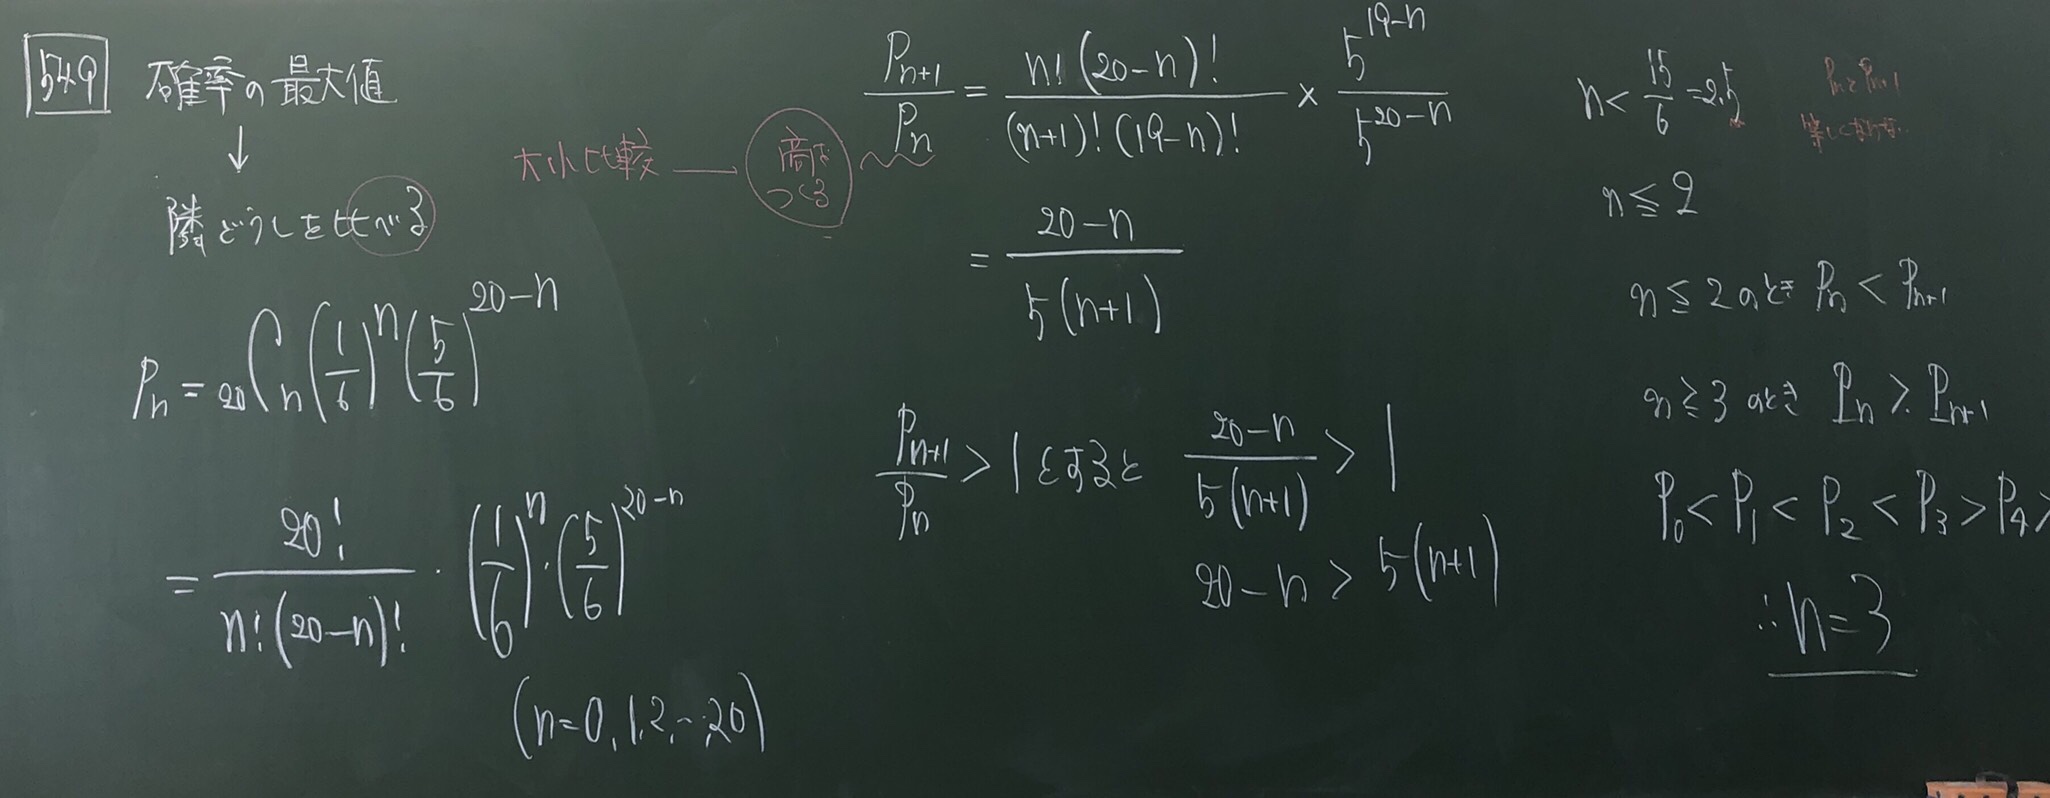 549 確率の最大値
↓
隣どうしを比べる
大小比較 — 商をつくる
Pn = 20Cn (1/6)^n (5/6)^(20-n)
= 20!/(n!(20-n)!) · (1/6)^n · (5/6)^(20-n)
(n=0,1,2,…,20)
Pn+1/Pn = n!(20-n)!/((n+1)!(19-n)!) × 5^(19-n)/5^(20-n)
= (20-n)/(5(n+1))
Pn+1/Pn > 1とすると (20-n)/(5(n+1)) > 1
20-n > 5(n+1)
n < 15/6 = 2.5
PnとPn+1
等しくならない
n ≦ 2
n ≦ 2のとき Pn < Pn+1
n ≧ 3のとき Pn > Pn+1
P0 < P1 < P2 < P3 > P4 >
∴ n=3